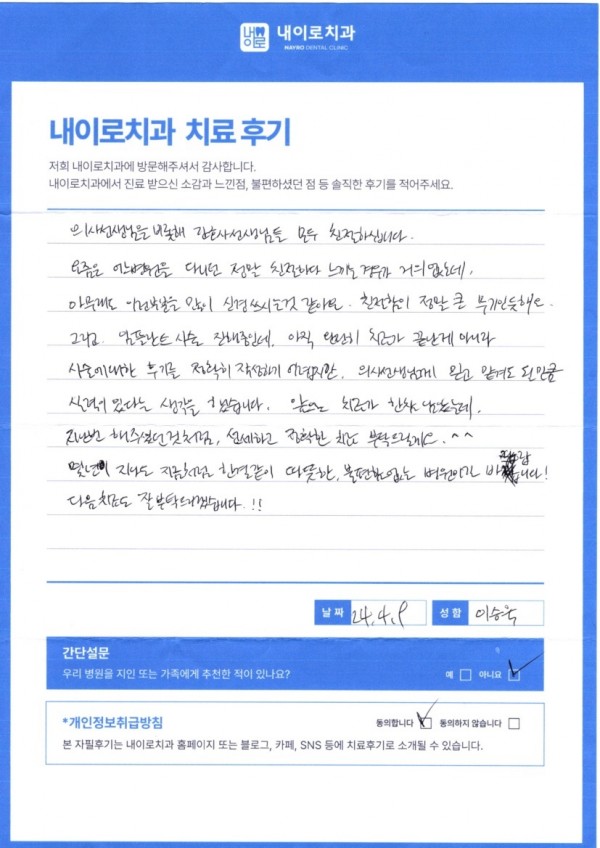 내이로
내이로치과
NAYRO DENTAL CLINIC
내이로치과 치료 후기
저희 내이로치과에 방문해주셔서 감사합니다.
내이로치과에서 진료 받으신 소감과 느낀점, 불편하셨던 점 등 솔직한 후기를 적어주세요.
의사선생님을 비롯해 간호사선생님들 모두 친절하십니다.
요즘은 어느병원을 다니던 정말 친절하다 느끼는 경우가 거의 없는데,
아무래도 이런부분을 많이 신경 쓰시는것 같아요. 친절함이 정말 큰 무기인듯해요.
그리고 임플란트 시술 진행중인데, 아직 완전히 치료가 끝난게 아니라
시술에대한 후기를 정확히 작성하기 어렵지만, 의사선생님께 믿고 맡겨도 될만큼
실력이 있다는 생각을 했습니다. 앞으로 치료가 한참 남았는데,
지난번 해주셨던것처럼, 섬세하고 정확한 치료 부탁드릴게요. ^^
몇년이 지나도 지금처럼 한결같이 따뜻한, 불편함없는 병원이기 바랍니다!
다음치료도 잘 부탁드리겠습니다.!!
날 짜 24.4.9 성 함 이승욱
간단설문
우리 병원을 지인 또는 가족에게 추천한 적이 있나요? 예 아니요
*개인정보취급방침 동의합니다 동의하지 않습니다
본 자필후기는 내이로치과 홈페이지 또는 블로그, 카페, SNS 등에 치료후기로 소개될 수 있습니다.